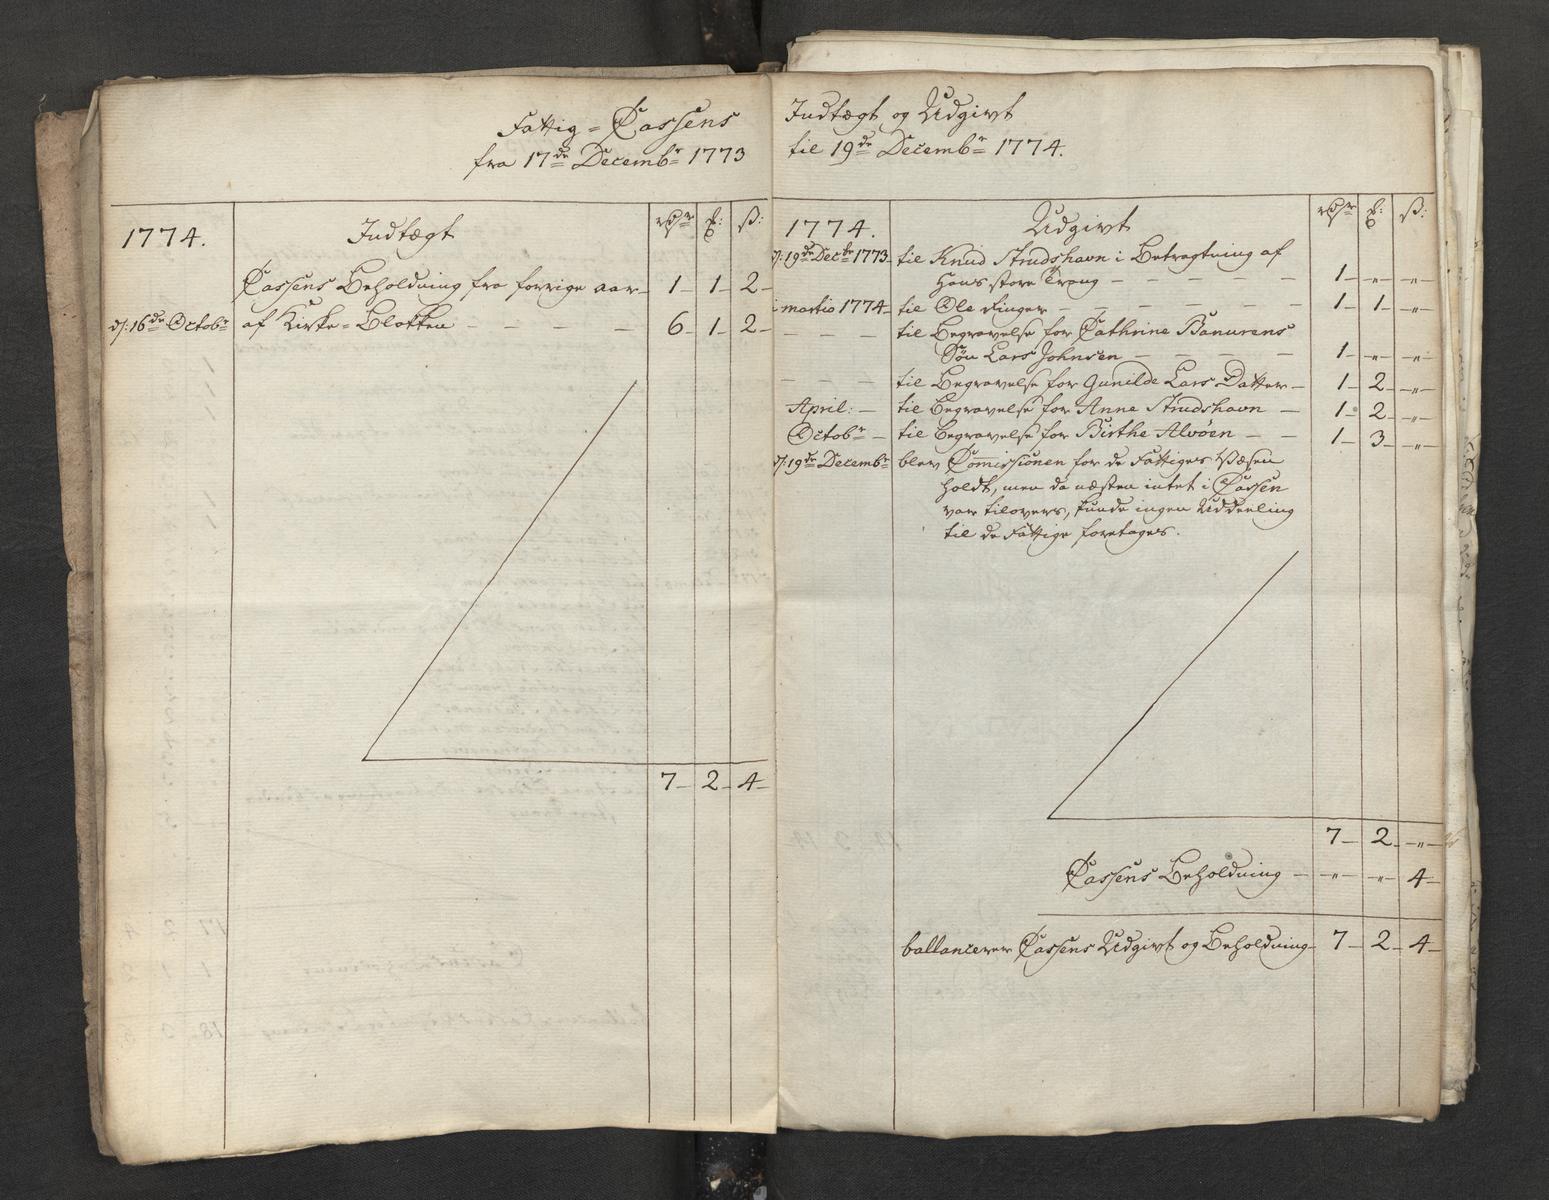 Fattig = Cassens
fra 17de Decembr 1773
1774. Indtægt rdr ℳ: ß:
Cassens Beholdning fra forrige Aar 1 - 1 - 2 -
d: 16de Octobr af Kirke = Blokken - - - - 6 - 1 - 2 -
7 - 2 - 4 -
Indtægt og Udgivt
til 19de Decembr 1774.
1774. Udgivt rdr ℳ: ß:
d: 19de Decbr 1773 til Knud Strudshavn i Betragtning af
Hans store Trang - - - - 1 - „ - „ -
i martio 1774 til Ole Ringer - - - - 1 - 1 - „ -
- - - til Begravelse for Cathrine
Søn Lars Johnsen - - - - 1 - „ - „ -
- - - til Begravelse for Gunilde Lars Datter - 1 - 2 - „ -
April: - til Begravelse for Anne Strudshavn - 1 - 2 - „ -
Octobr - til Begravelse for Birthe Alvøen - - 1 - 3 - „ -
d: 19de Decembr blev Commissionen for de Fattiges Væsen
holdt, men da næsten intet i Cassen
var tilovers, kunde ingen Uddeeling
til de Fattige foretages.
7 - 2 - „ -
Cassens Beholdning - „ - „ - 4 -
ballancerer Cassens Udgivt og Beholdning 7 - 2 - 4 -